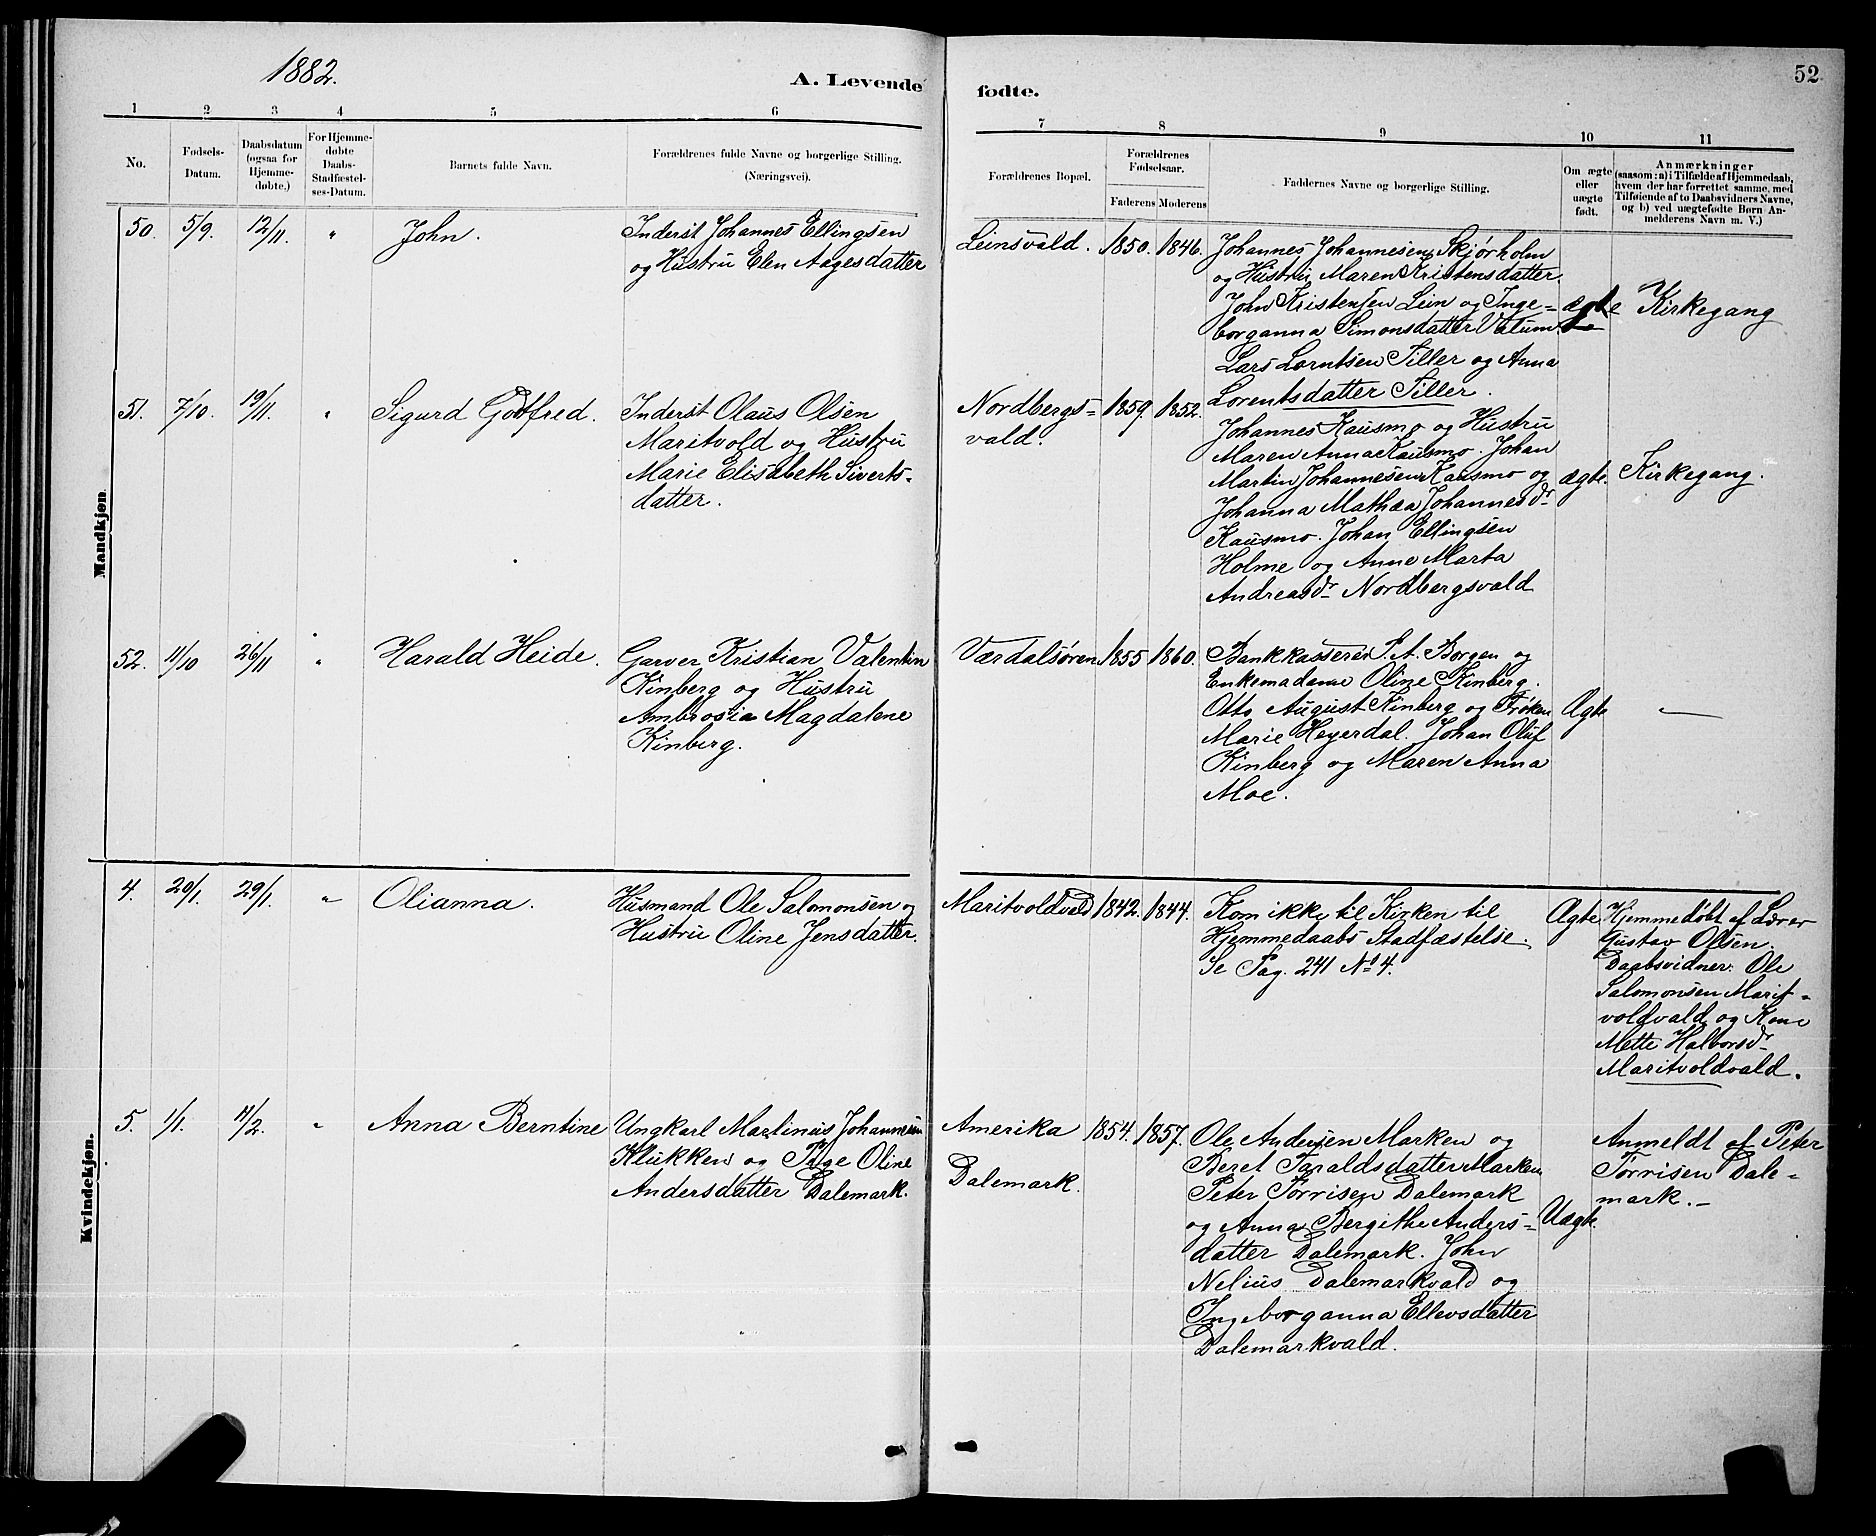 1882.
A. Levende fødte.
52
1 2 3 4 5 6 7 8 9 10 11
No.
Fødsels-
Datum.
Daabsdatum
(ogsaa for
Hjemme-
døbte.)
For Hjemme-
døbte
Daabs-
Stadfæstel-
ses-Datum.
Barnets fulde Navn.
Forældrenes fulde Navne og borgerlige Stilling.
(Næringsvei).
Forældrenes Bopæl.
Forældrenes
Fødselsaar.
Faderens Moderens
Faddernes Navne og borgerlige Stilling.
Om ægte
eller
uægte
født.
Anmærkninger
(saasom: a) i Tilfælde af Hjemmedaab,
hvem der har forrettet samme, med
Tilføiende af to Daabsvidners Navne,
og b) ved uægtefødte Børn An-
melderens Navn m. V.)
Mandkjøn.
50. 5/9. 12/11. " John.
Inderst Johannes Ellingsen
og Hustru Elen Aagesdatter
Leinsvald. 1850. 1846.
Johannes Johannesen Skjørholm
og Hustru Maren Kristensdatter.
John Kristensen Lein og Inge-
borganna Simonsdatter Valum.
Lars Lorntsen Tiller og Anna
Lorentsdatter Tiller.
ægte
Kirkegang
51. 7/10. 19/11. " Sigurd Godtfred.
Inderst Olaus Olsen
Maritvold og Hustru
Marie Elisabeth Siverts-
datter.
Nordbergs-
vald.
1859. 1852.
Johannes Kausmo og Hustru
Maren Anna Kausmo. Johan
Martin Johannesen Kausmo og
Johanna Mathea Johannesdr
Kausmo. Johan Ellingsen
Holme og Anne Marta
Andreasdr Nordbergsvald
ægte.
Kirkegang.
52. 11/10 26/11 " Harald Heide.
Garver Kristian Valentin
Kinberg og Hustru
Ambrosia Magdalene
Kinberg.
Værdalsøren 1855 1860.
Bankkasserer P. A. Borgen og
Enkemadame Oline Kinberg.
Otto August Kinberg og Frøken
Marie Heyerdal. Johan Oluf
Kinberg og Maren Anna
Moe.
Ægte
—
Kvindekjøn.
4. 20/1. 29/1. " Olianna.
Husmand Ole Salomonsen og
Hustru Oline Jensdatter.
Maritvoldvald 1842. 1844.
Kom ikke til Kirken til
Hjemmedaabs Stadfæstelse
Se Pag. 241 No 4.
Ægte
Hjemmedøbt af Lærer
Gustav Olsen.
Daabsvidner: Ole
Salomonsen Marit-
voldvald og Kone
Mette Halvorsdr
Maritvoldvald.
5. 1/1. 11/2. " Anna Berntine
Ungkarl Martinus Johannesen
Klukken og Pige Oline
Andersdatter Dalemark.
Amerika
Dalemark.
1854. 1857.
Ole Andersen Marken og
Beret Taraldsdatter Marken
Peter Torrisen Dalemark
og Anna Bergithe Anders-
datter Dalemark. John
Nelius Dalemarkvald og
Ingeborganna Ellevsdatter
Dalemarkvald.
Uægte.
Anmeldt af Peter
Torrisen Dale-
mark.-